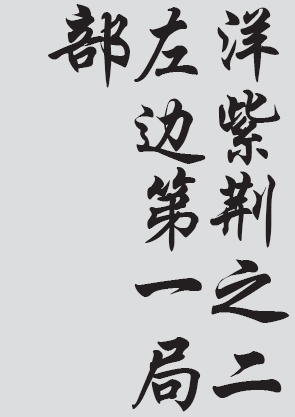 洋紫荆之二
左边第一局
部